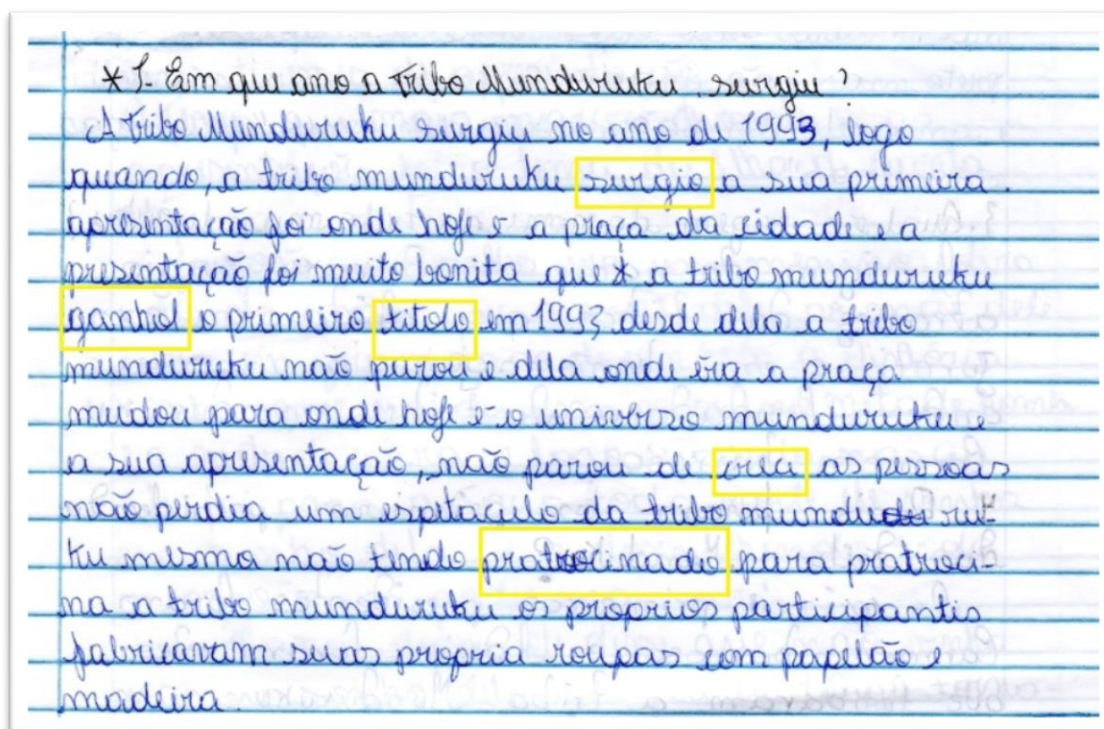 * 1- Em que ano a tribo Munduruku surgiu?
A tribo Munduruku surgiu no ano de 1993, logo
quando, a tribo munduruku surgio a sua primeira
apresentação foi onde hoje é a praça da cidade e a
presentação foi muito bonita que * a tribo munduruku
ganhol o primeiro titolo em 1993 desde dela a tribo
munduruku não parou e dela onde éra a praça
mudou para onde hoje é o universo munduruku e
a sua apresentação, não parou de creci as pessoas
não perdia um espetaculo da tribo mundu ru-
ku mesmo não tendo pratrocinado para pratroci-
na a tribo munduruku os proprios participantis
fabricavam suas propria roupas com papelão e
madeira.